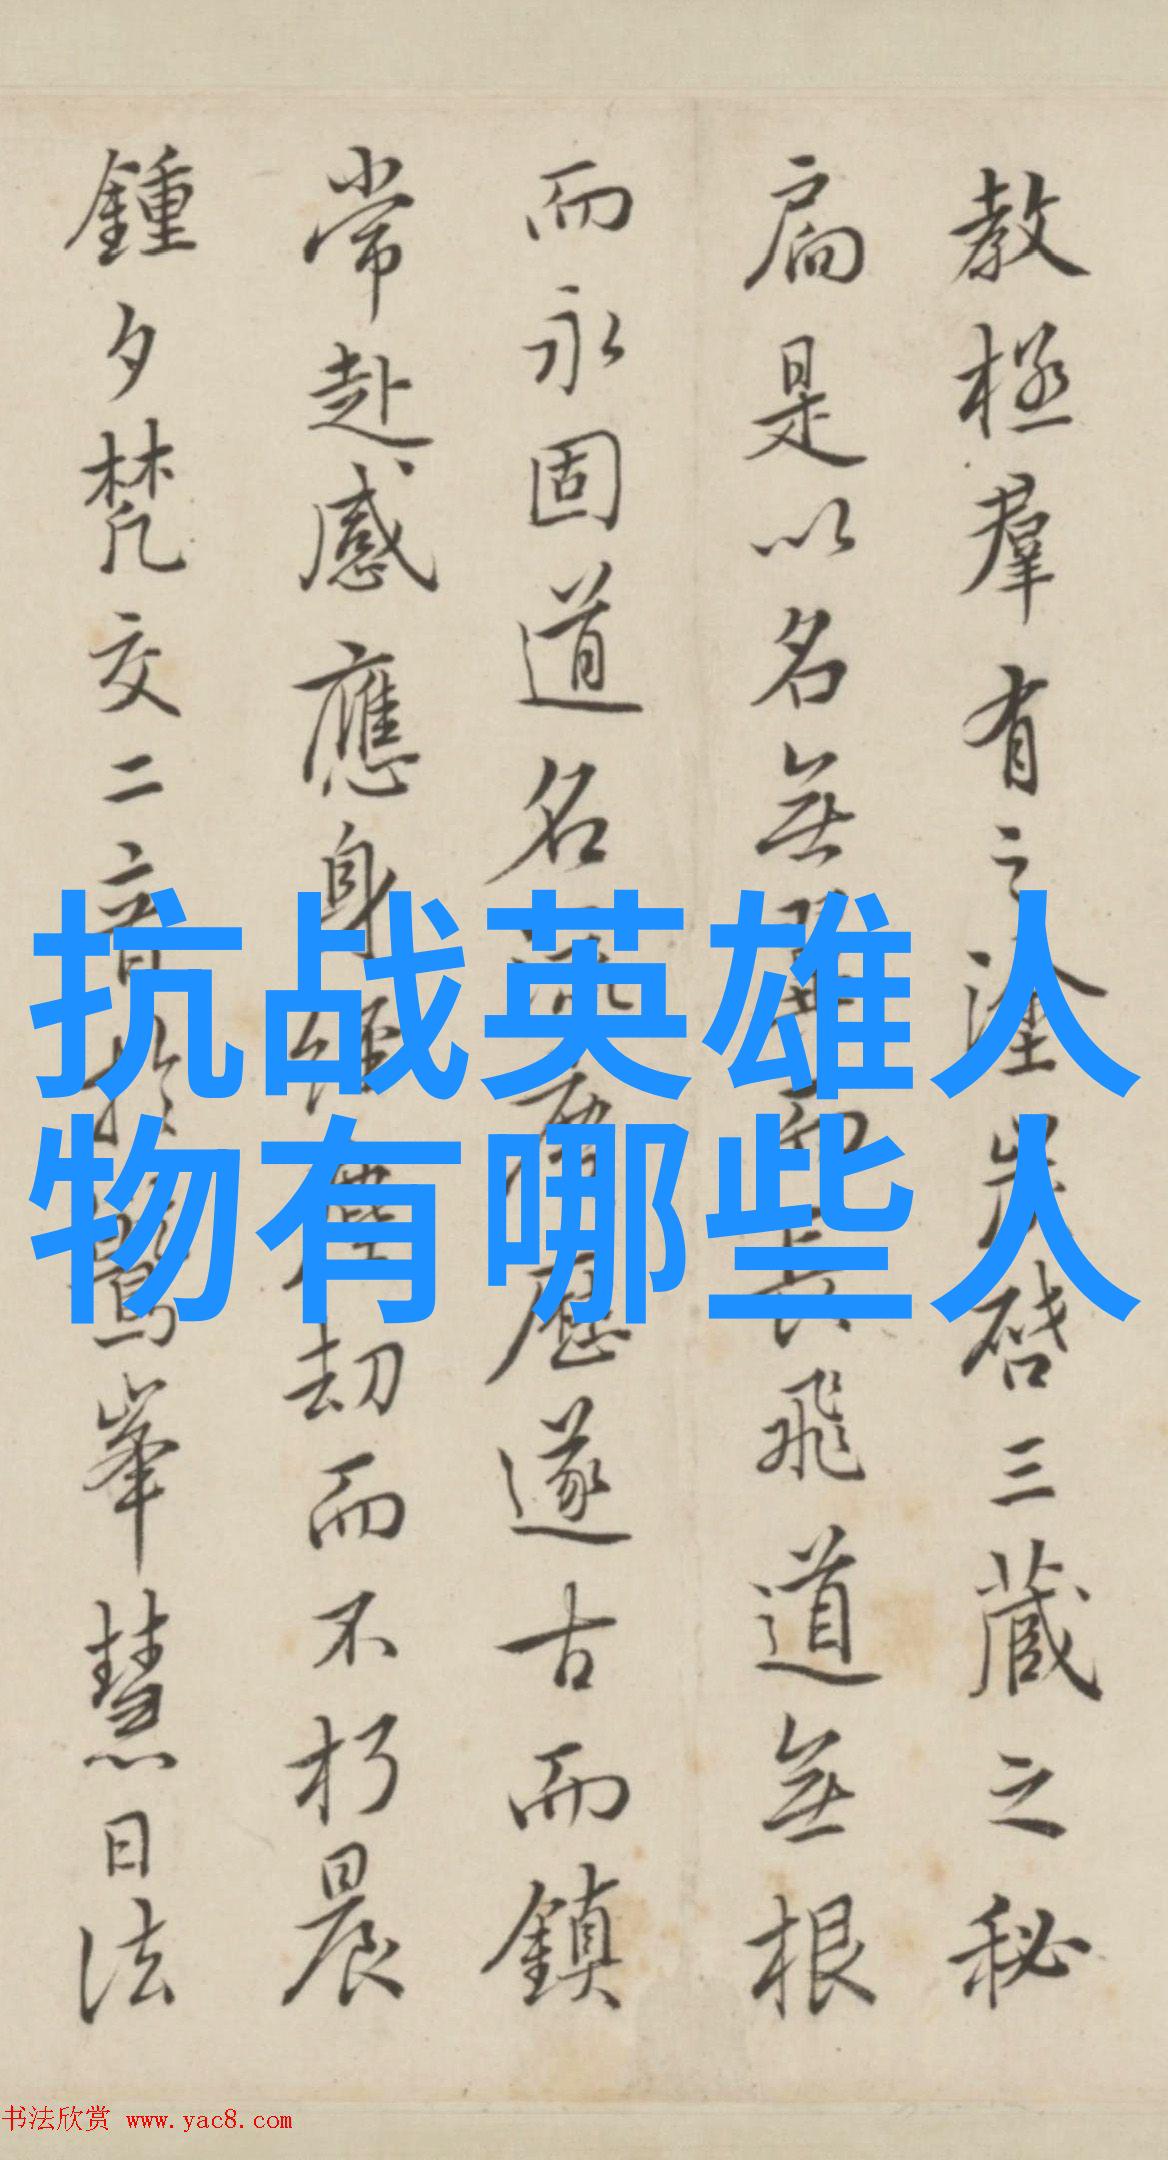 教極羣有之塗炭啓三藏之秘
扃是以名無翼而長飛道無根
而永固道名流慶歷遂古而鎮
常赴感應身經塵劫而不朽晨
鍾夕梵交二音於鷲峯慧日法
抗战英雄人
物有哪些人
书法欣赏 www.yac8.com